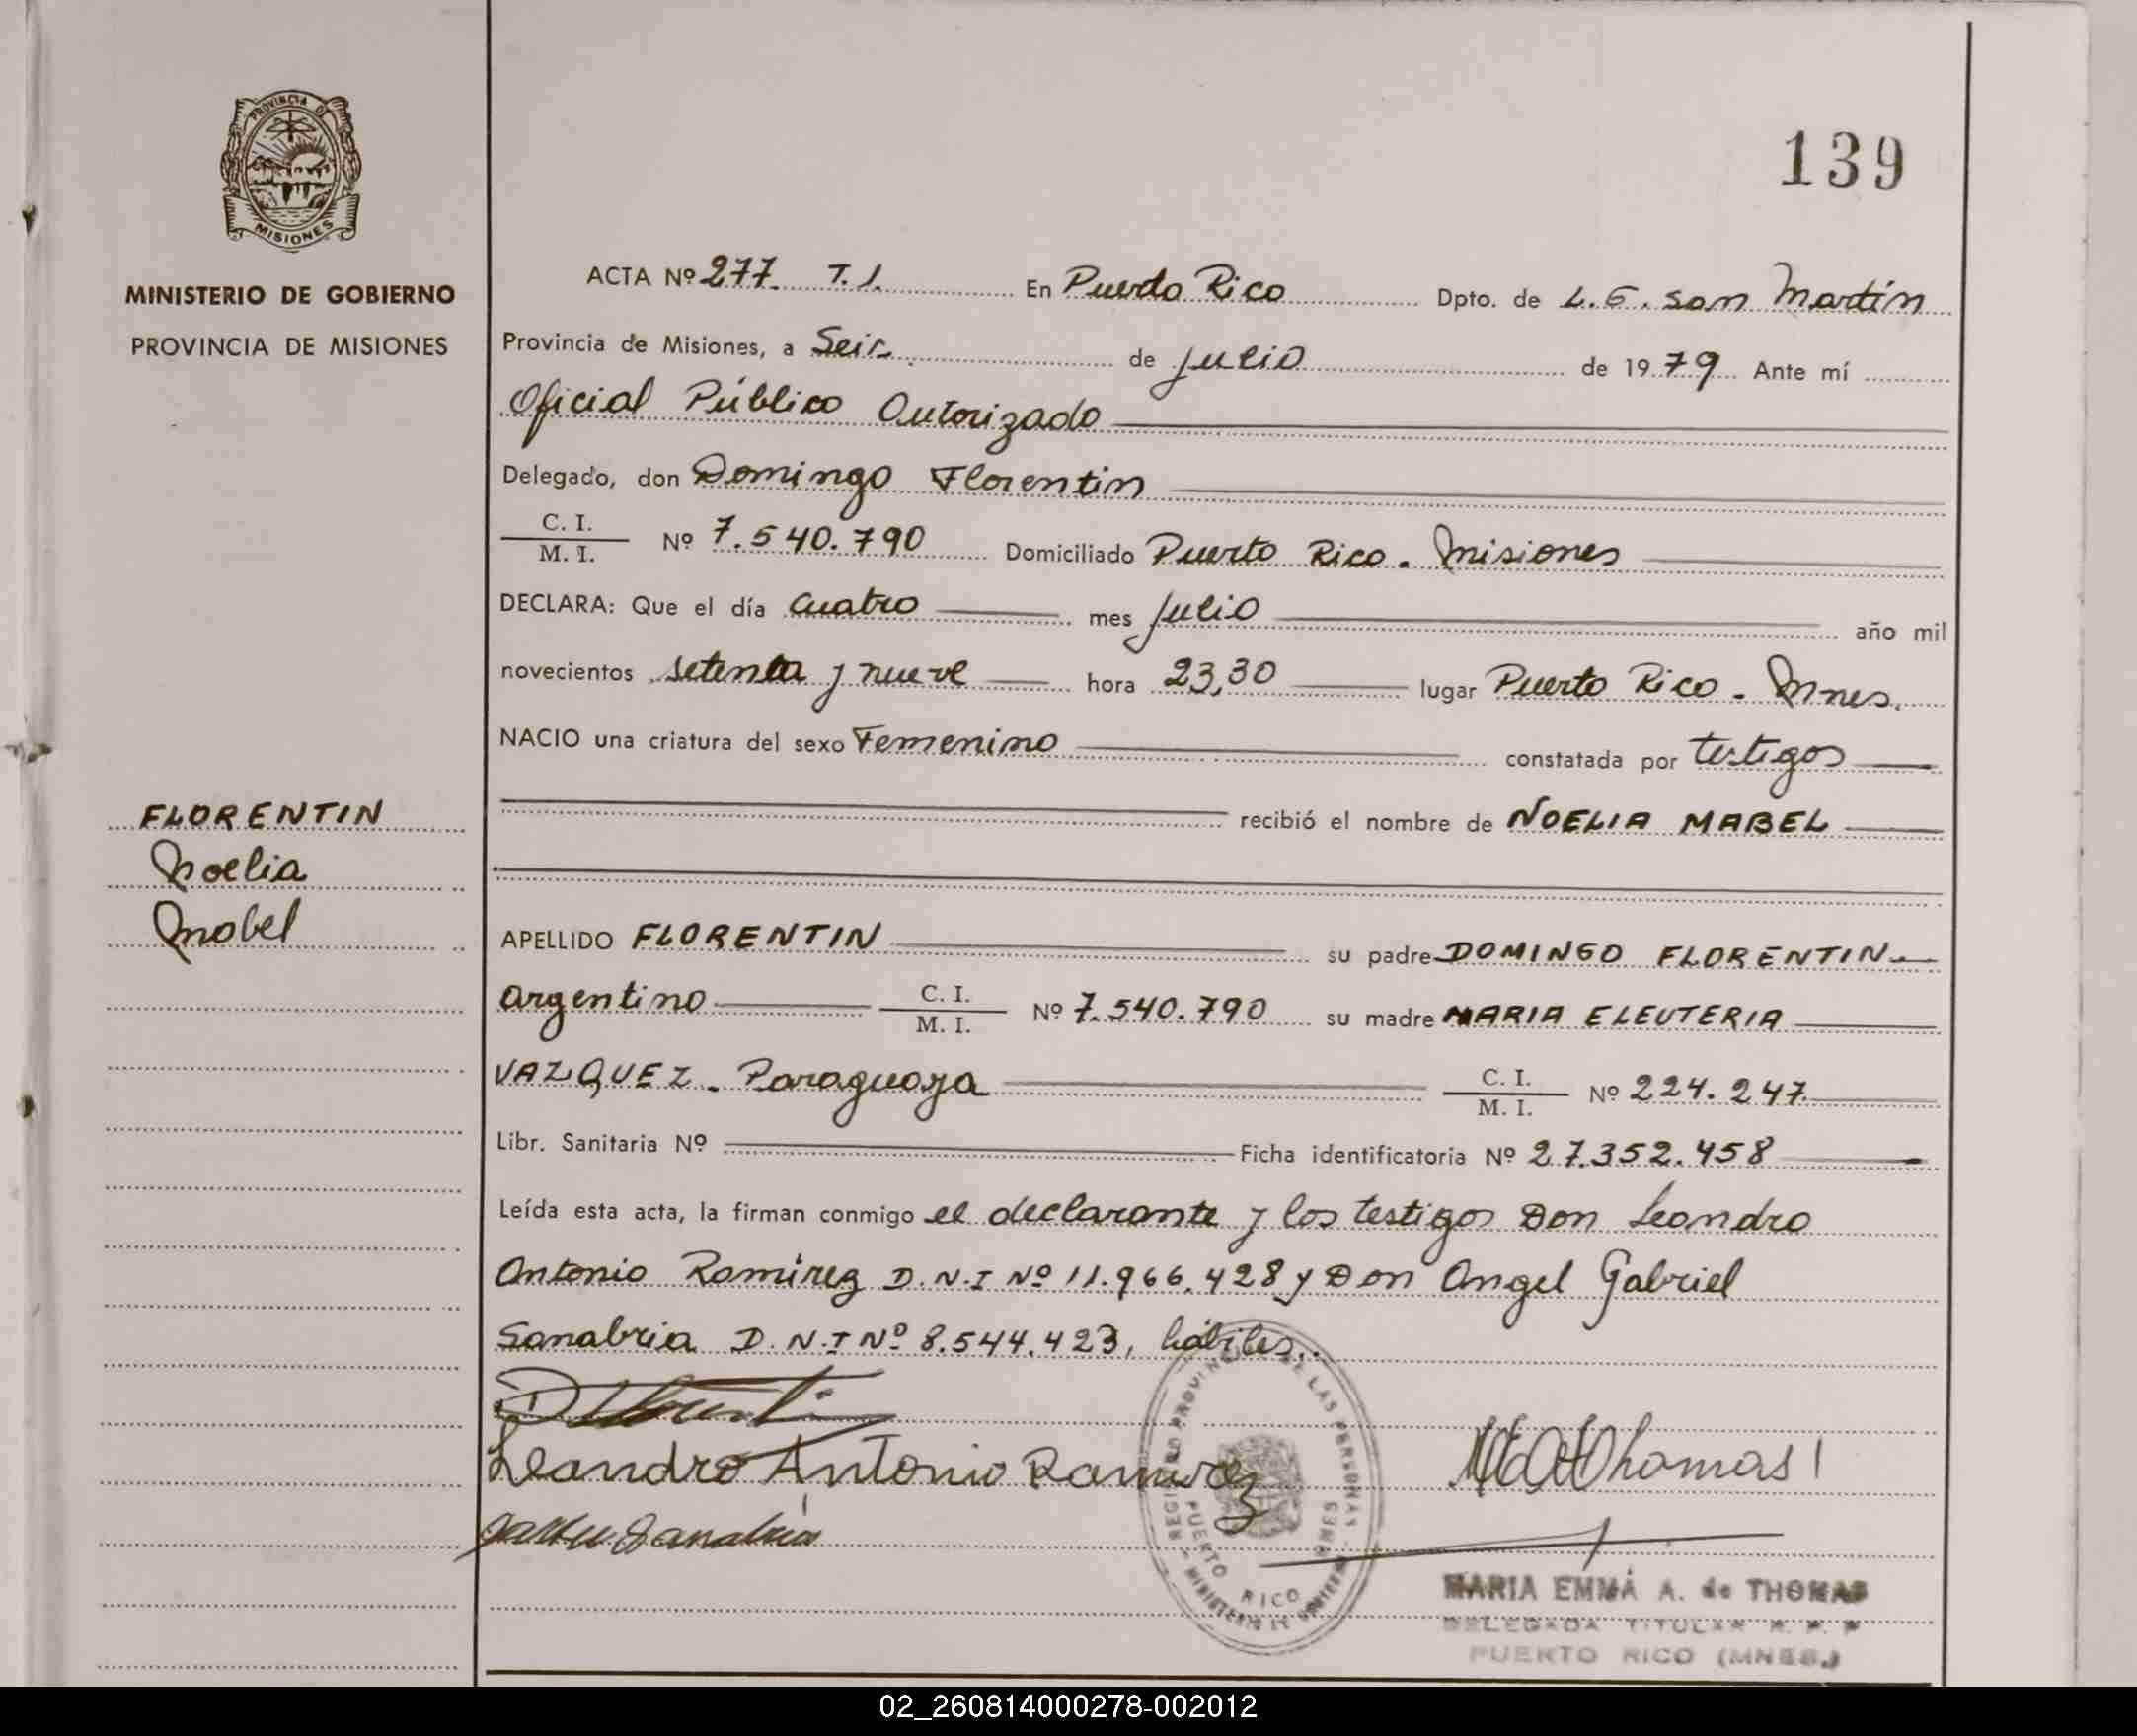 PROVINCIA DE
MISIONES
MINISTERIO DE GOBIERNO
PROVINCIA DE MISIONES
FLORENTIN
Noelia
Mabel
139
ACTA Nº 277 T.I. En Puerto Rico Dpto. de L.G. San Martín
Provincia de Misiones, a Seis de julio de 1979 Ante mí
Oficial Público Autorizado
Delegado, don Domingo Florentin
C. I. / M. I. Nº 7.540.790 Domiciliado Puerto Rico. Misiones
DECLARA: Que el día cuatro mes julio año mil
novecientos setenta y nueve hora 23,30 lugar Puerto Rico - Mnes.
NACIO una criatura del sexo Femenino constatada por testigos
recibió el nombre de NOELIA MABEL
APELLIDO FLORENTIN su padre DOMINGO FLORENTIN
argentino C. I. / M. I. Nº 7.540.790 su madre MARIA ELEUTERIA
VAZQUEZ - Paraguaya C. I. / M. I. Nº 224.247
Libr. Sanitaria Nº Ficha identificatoria Nº 27.352.458
Leída esta acta, la firman conmigo el declarante y los testigos Don Leandro
Antonio Ramírez D.N.I Nº 11.966.428 y Don Angel Gabriel
Sanabria D.N.I Nº 8.544.423, hábiles.
Leandro Antonio Ramirez
Sanabria
Thomas
PUERTO RICO
MARIA EMMA A. de THOMAS
DELEGADA TITULAR
PUERTO RICO (MNES.)
02_260814000278-002012